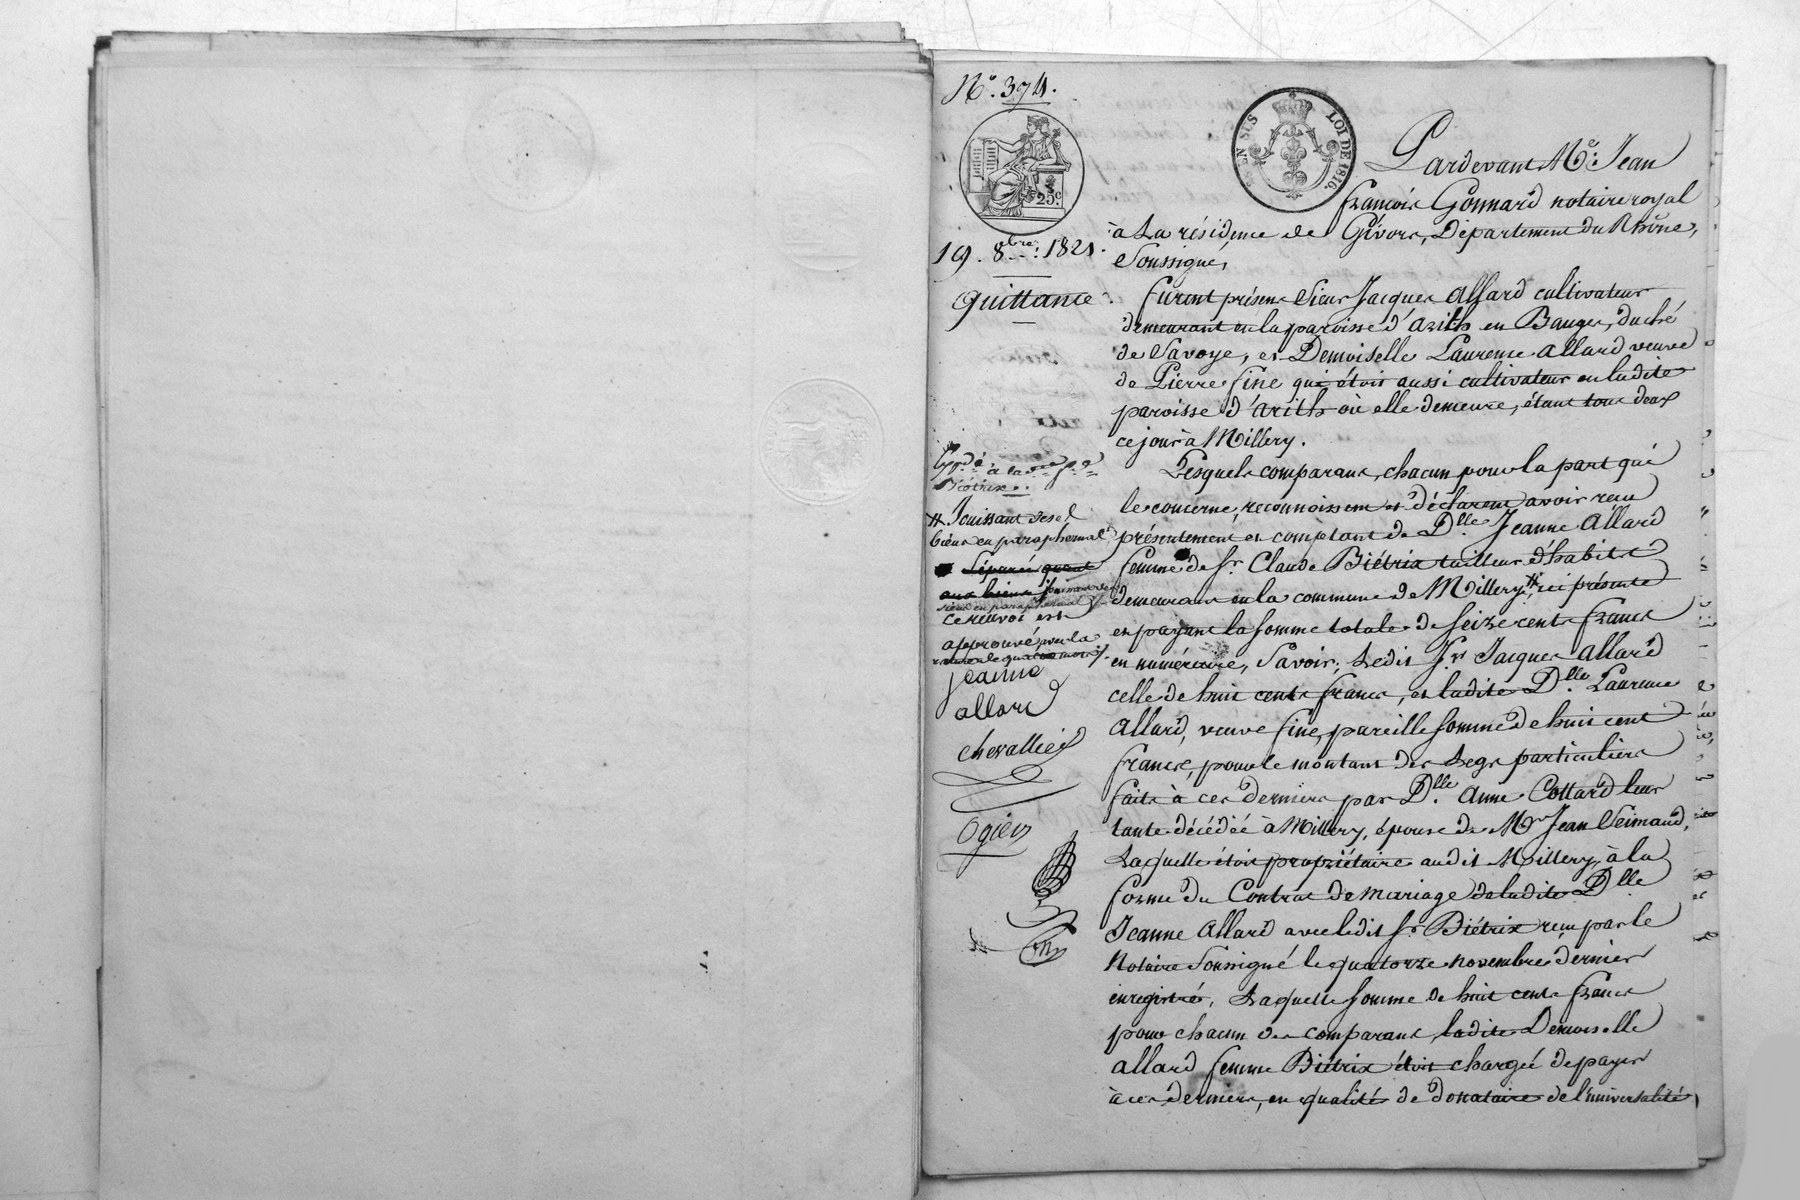 N.° 374.
25.c
EN SUS
LOI DE 1816.
19. 8bre. 1821.
Quittance.
Pardevant Me. Jean
françois Gonnard notaire royal
à La résidence de Givors, Département du Rhône,
Soussigné,
furent présens Sieur Jacques Allard cultivateur
demeurant en la paroisse d'arith en Bauges, duché
de Savoye, et Demoiselle Laurence allard veuve
de Pierre fine qui étoit aussi cultivateur en ladite
paroisse d'arith où elle demeure, étant tous deux
ce jour à Millery.
Lesquels comparans, chacun pour la part qui
le concerne, reconnoissent et déclarent avoir reçu
présentement et comptant de Dlle. Jeanne Allard
femme de Sr. Claude Biétrix tailleur d'habits
demeurant en la commune de Millery, # ici présente
et payant la somme totale de seize cents francs
en numéraire, Savoir; Ledit Sr. Jacques Allard
celle de huit cents francs, et ladite Dlle. Laurence
Allard, veuve fine, pareille somme de huit cent
francs, pour le montant des Legs particuliers
faits à ces derniers par Dlle. Anne Collard leur
tante décédée à Millery, épouse de Mr. Jean Seimaud,
Laquelle étoit propriétaire audit Millery, à la
forme du Contrat de mariage de ladite Dlle.
Jeanne Allard avec ledit Sr. Biétrix reçu par le
Notaire Soussigné le quatorze novembre dernier
enregistré. Laquelle somme de huit cents francs
pour chacun des comparans, ladite Demoiselle
allard femme Biétrix étoit chargée de payer
à ces derniers, en qualité de donataire de l'universalité
Biétrix.
# Jouissant de ses
biens en paraphernal
séparée quant
aux biens jouissant de ses
biens en paraphernal
ce renvoi est
approuvé, avec la
jeanne
allard
chevallier
Ogier